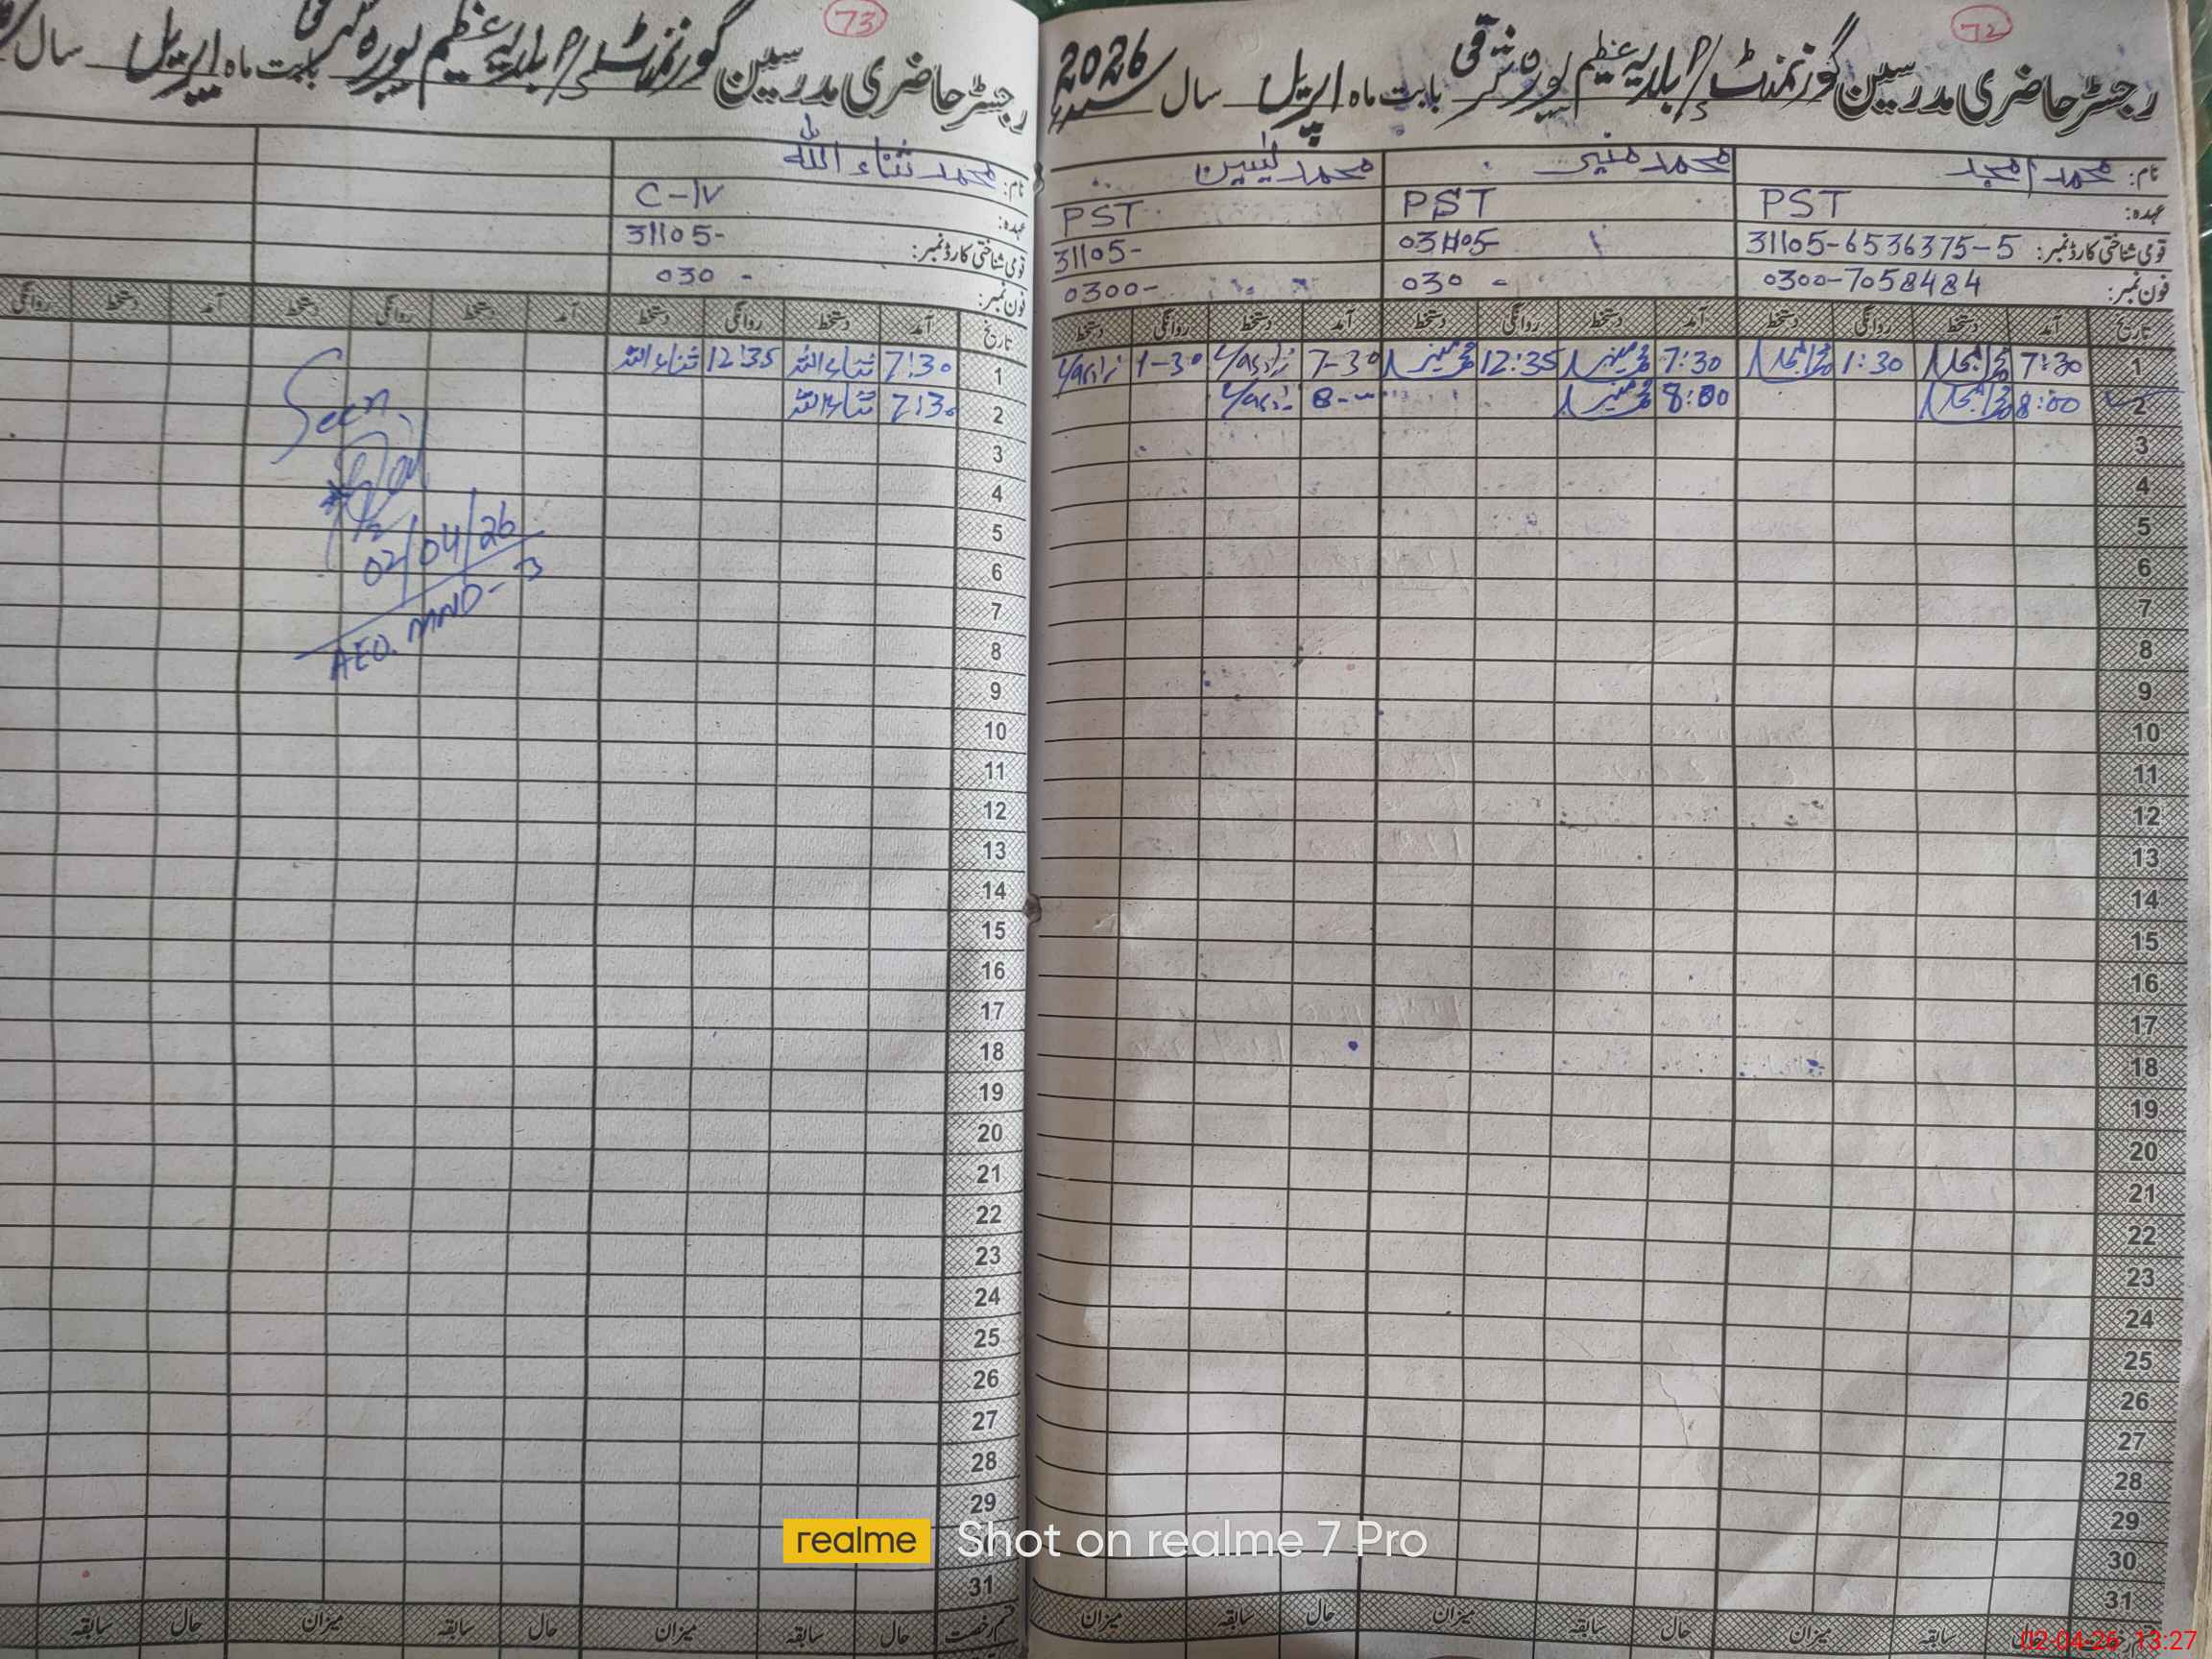 72
رجسٹر حاضری مدرسین گورنمنٹ بابت ماہ اپریل سال 2026
نام: محمد امجد
محمد منیر
محمد یٰسین
عہدہ: PST
PST
PST
قومی شناختی کارڈ نمبر: 31105-6536375-5
31105-
فون نمبر: 0300-7058484
030 -
0300-
تاریخ آمد دستخط روانگی دستخط آمد دستخط روانگی دستخط آمد دستخط روانگی دستخط
1 7:30 1:30 7:30 12:35 7-30 1-30
2 8:00 8:00 8--
3
4
5
6
7
8
9
10
11
12
13
14
15
16
17
18
19
20
21
22
23
24
25
26
27
28
29
30
31
سابقہ میزان حال سابقہ میزان حال سابقہ میزان
73
رجسٹر حاضری مدرسین گورنمنٹ بابت ماہ اپریل سال
نام: محمد ثناء اللہ
عہدہ: C-IV
قومی شناختی کارڈ نمبر: 31105-
فون نمبر: 030 -
تاریخ آمد دستخط روانگی دستخط آمد دستخط روانگی دستخط آمد دستخط روانگی
1 7:30 ثناء اللہ 12:35 ثناء اللہ
2 7:30 ثناء اللہ
3
4
5
6
7
8
9
10
11
12
13
14
15
16
17
18
19
20
21
22
23
24
25
26
27
28
29
31
قسم رخصت حال سابقہ میزان حال سابقہ میزان حال سابقہ
Seen
02/04/26
AEO.
realme Shot on realme 7 Pro
02-04-26 13:27